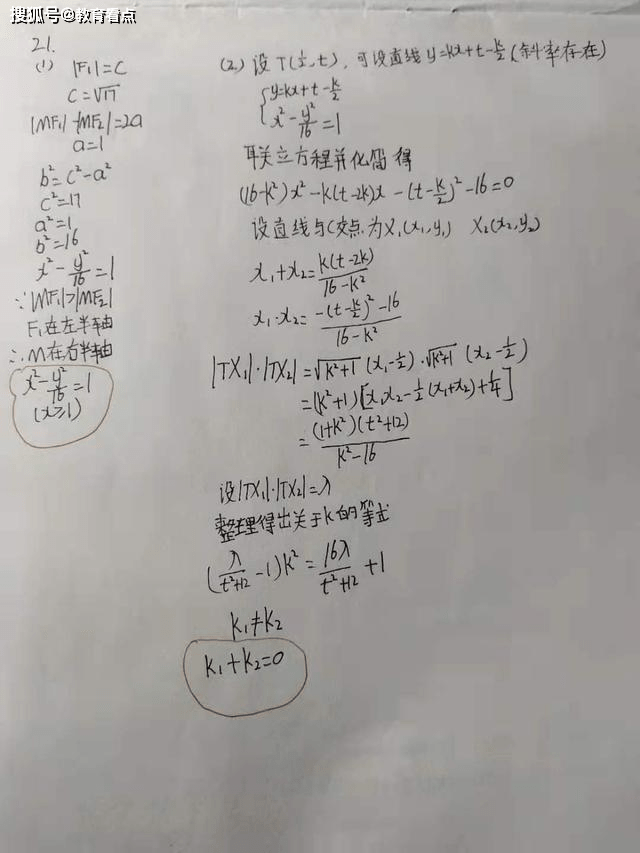 搜狐号@教育看点
21.
(1) |F₁|=C
C=√17
|MF₁|-|MF₂|=2a
a=1
b²=c²-a²
c²=17
a²=1
b²=16
x²-y²/16=1
∵|MF₁|>|MF₂|
F₁在左半轴
∴M在右半轴
x²-y²/16=1
(x≥1)
(2) 设T(½,t),可设直线y=kx+t-k/2(斜率存在)
{y=kx+t-k/2
x²-y²/16=1
联立方程并化简得
(16-k²)x²-k(t-2k)x-(t-k/2)²-16=0
设直线与C交点为X₁(x₁,y₁) X₂(x₂,y₂)
x₁+x₂=k(t-2k)/16-k²
x₁·x₂=-(t-k/2)²-16/16-k²
|TX₁|·|TX₂|=√k²+1(x₁-½)·√k²+1(x₂-½)
=(k²+1)[x₁x₂-½(x₁+x₂)+¼]
=(1+k²)(t²+12)/k²-16
设|TX₁|·|TX₂|=λ
整理得出关于k的等式
(λ/t²+12-1)k²=16λ/t²+12+1
k₁≠k₂
k₁+k₂=0